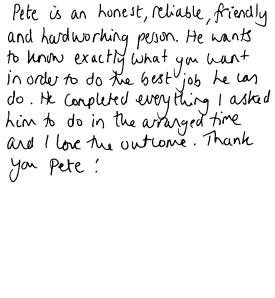 Pete is an honest, reliable, friendly
and hardworking person. He wants
to know exactly what you want
in order to do the best job he can
do. He completed everything I asked
him to do in the arranged time
and I love the outcome. Thank
you Pete!